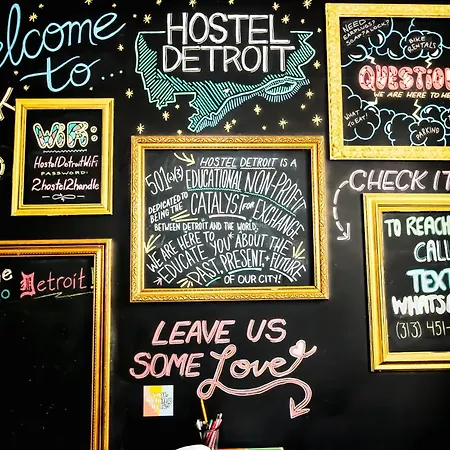 Welcome
to...
HOSTEL
DETROIT
NEED
EARPLUGS?
SOAP? A LOCK?
BIKE
RENTALS
QUESTION
WE ARE HERE TO HE
WHAT TO
EAT?
PARKING
WiFi:
HostelDetroitWifi
PASSWORD:
2hostel2handle
HOSTEL DETROIT IS A
501c(3)
EDUCATIONAL NON-PROFIT
DEDICATED TO
BEING THE
CATALYST for EXCHANGE
BETWEEN DETROIT AND THE WORLD.
WE ARE HERE TO
EDUCATE YOU ABOUT THE
PAST, PRESENT, + FUTURE
OF OUR CITY!
CHECK IT
TO REACH
CALL
TEXT
WHATSA
(313) 451-
Detroit!
LEAVE US
SOME Love